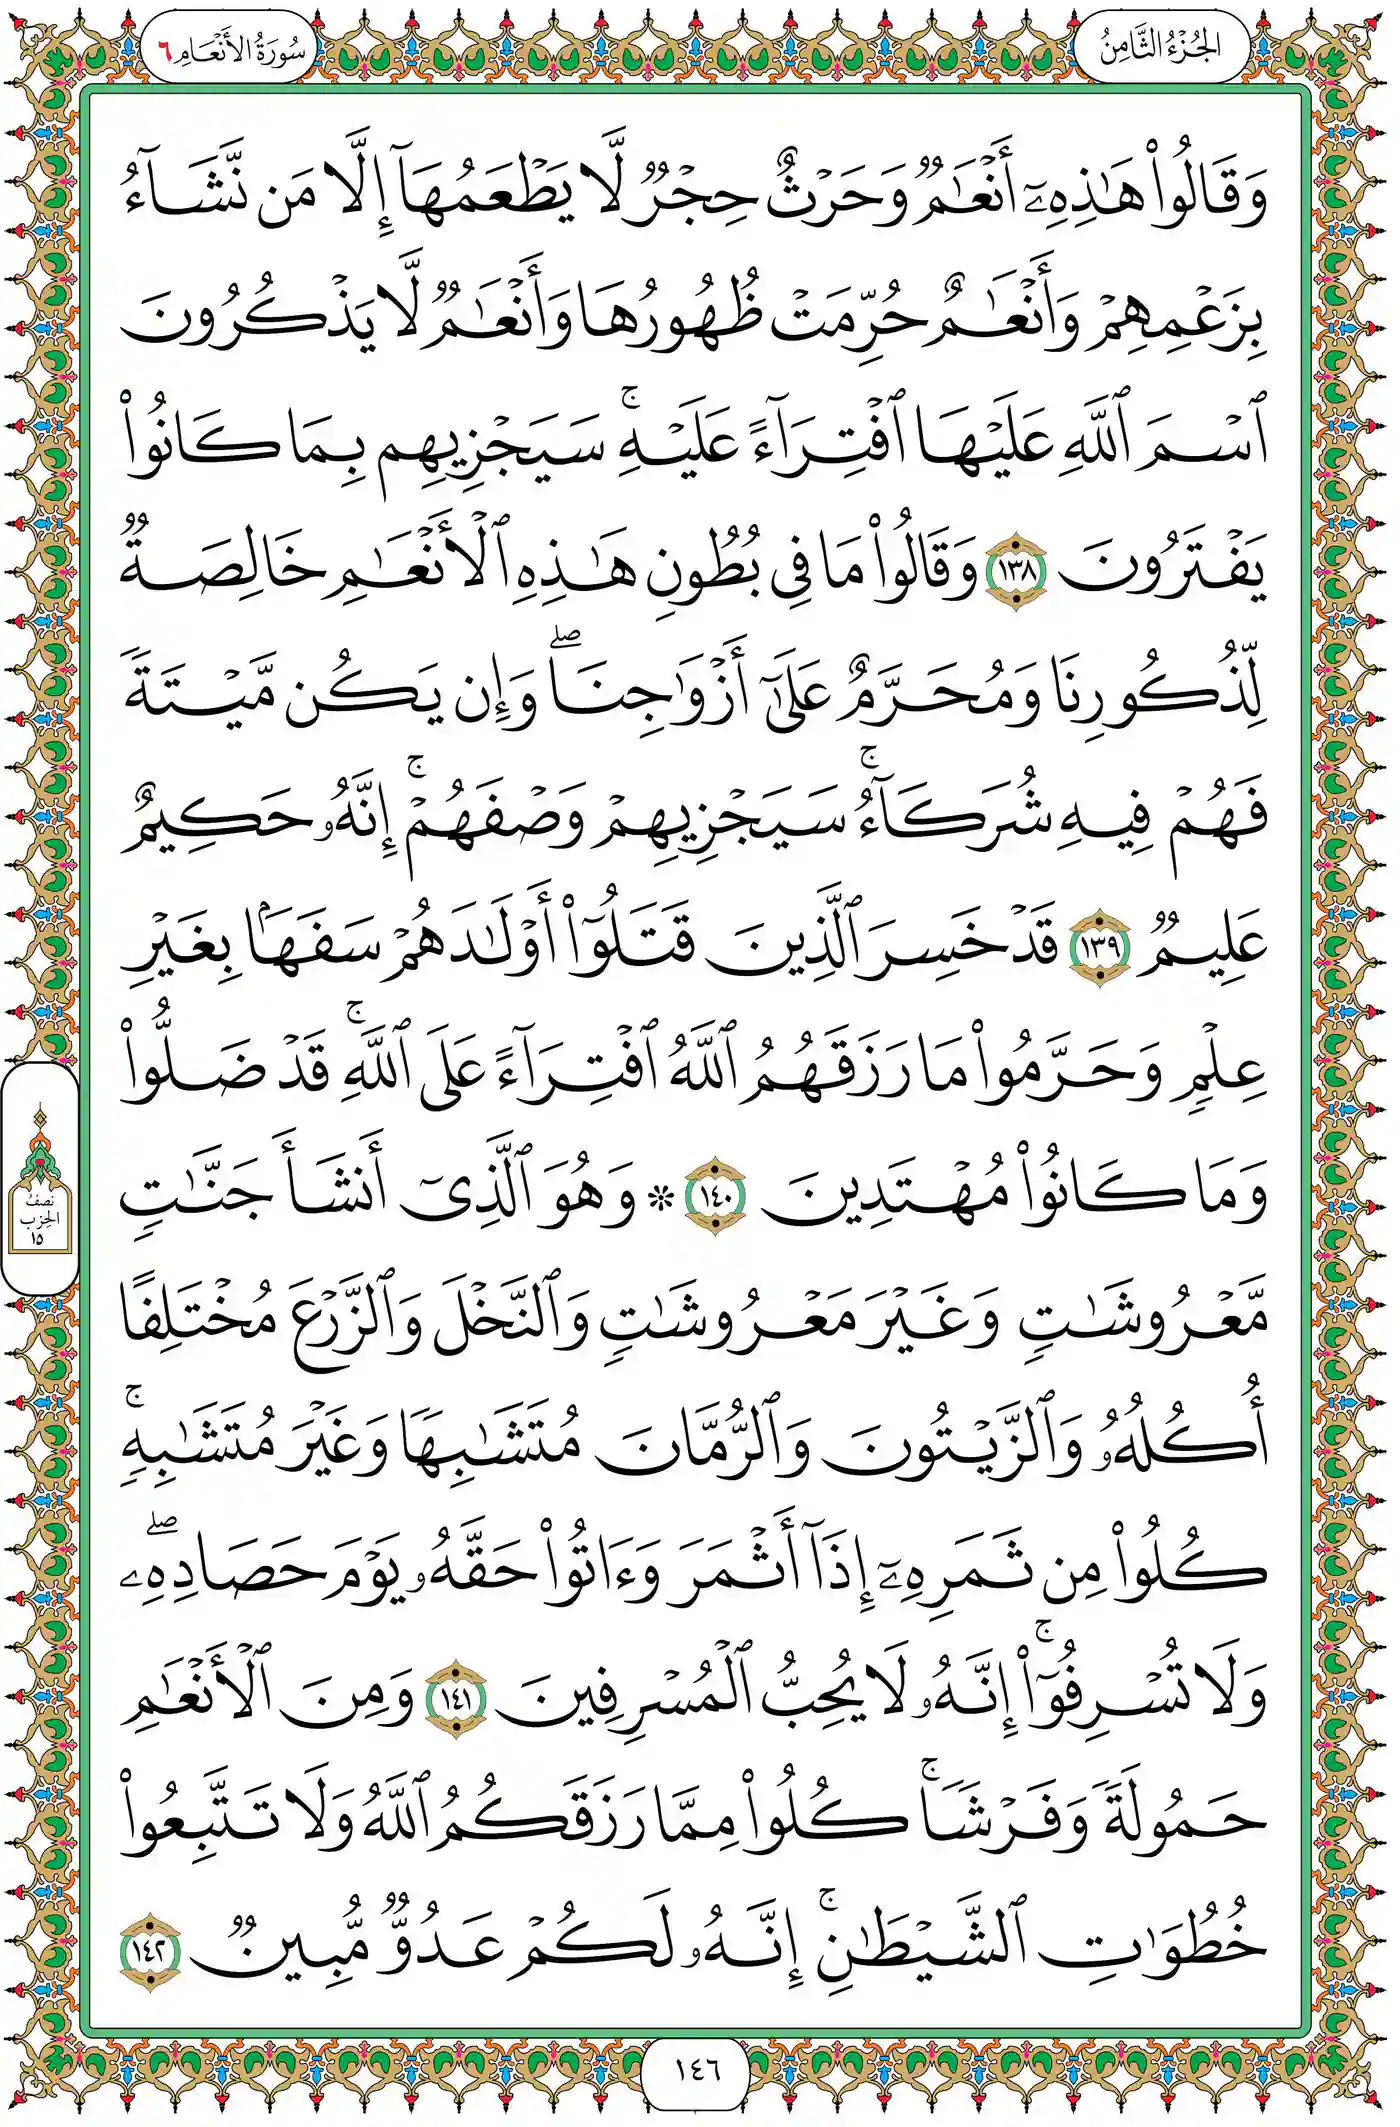 الجُزْءُ الثَّامِنُ
سُورَةُ الأَنْعَامِ ٦
وَقَالُوا۟ هَـٰذِهِۦٓ أَنْعَـٰمٌۭ وَحَرْثٌ حِجْرٌۭ لَّا يَطْعَمُهَآ إِلَّا مَن نَّشَآءُ
بِزَعْمِهِمْ وَأَنْعَـٰمٌ حُرِّمَتْ ظُهُورُهَا وَأَنْعَـٰمٌۭ لَّا يَذْكُرُونَ
ٱسْمَ ٱللَّهِ عَلَيْهَا ٱفْتِرَآءً عَلَيْهِ ۚ سَيَجْزِيهِم بِمَا كَانُوا۟
يَفْتَرُونَ ١٣٨ وَقَالُوا۟ مَا فِى بُطُونِ هَـٰذِهِ ٱلْأَنْعَـٰمِ خَالِصَةٌۭ
لِّذُكُورِنَا وَمُحَرَّمٌ عَلَىٰٓ أَزْوَٰجِنَا ۖ وَإِن يَكُن مَّيْتَةًۭ
فَهُمْ فِيهِ شُرَكَآءُ ۚ سَيَجْزِيهِمْ وَصْفَهُمْ ۚ إِنَّهُۥ حَكِيمٌ
عَلِيمٌۭ ١٣٩ قَدْ خَسِرَ ٱلَّذِينَ قَتَلُوٓا۟ أَوْلَـٰدَهُمْ سَفَهًۢا بِغَيْرِ
عِلْمٍۢ وَحَرَّمُوا۟ مَا رَزَقَهُمُ ٱللَّهُ ٱفْتِرَآءً عَلَى ٱللَّهِ ۚ قَدْ ضَلُّوا۟
وَمَا كَانُوا۟ مُهْتَدِينَ ١٤٠ ۞ وَهُوَ ٱلَّذِىٓ أَنشَأَ جَنَّـٰتٍۢ
مَّعْرُوشَـٰتٍۢ وَغَيْرَ مَعْرُوشَـٰتٍۢ وَٱلنَّخْلَ وَٱلزَّرْعَ مُخْتَلِفًا
أُكُلُهُۥ وَٱلزَّيْتُونَ وَٱلرُّمَّانَ مُتَشَـٰبِهًۭا وَغَيْرَ مُتَشَـٰبِهٍۢ ۚ
كُلُوا۟ مِن ثَمَرِهِۦٓ إِذَآ أَثْمَرَ وَءَاتُوا۟ حَقَّهُۥ يَوْمَ حَصَادِهِۦ ۖ
وَلَا تُسْرِفُوٓا۟ ۚ إِنَّهُۥ لَا يُحِبُّ ٱلْمُسْرِفِينَ ١٤١ وَمِنَ ٱلْأَنْعَـٰمِ
حَمُولَةًۭ وَفَرْشًۭا ۚ كُلُوا۟ مِمَّا رَزَقَكُمُ ٱللَّهُ وَلَا تَتَّبِعُوا۟
خُطُوَٰتِ ٱلشَّيْطَـٰنِ ۚ إِنَّهُۥ لَكُمْ عَدُوٌّۭ مُّبِينٌۭ ١٤٢
نصف
الحزب
١٥
١٤٦